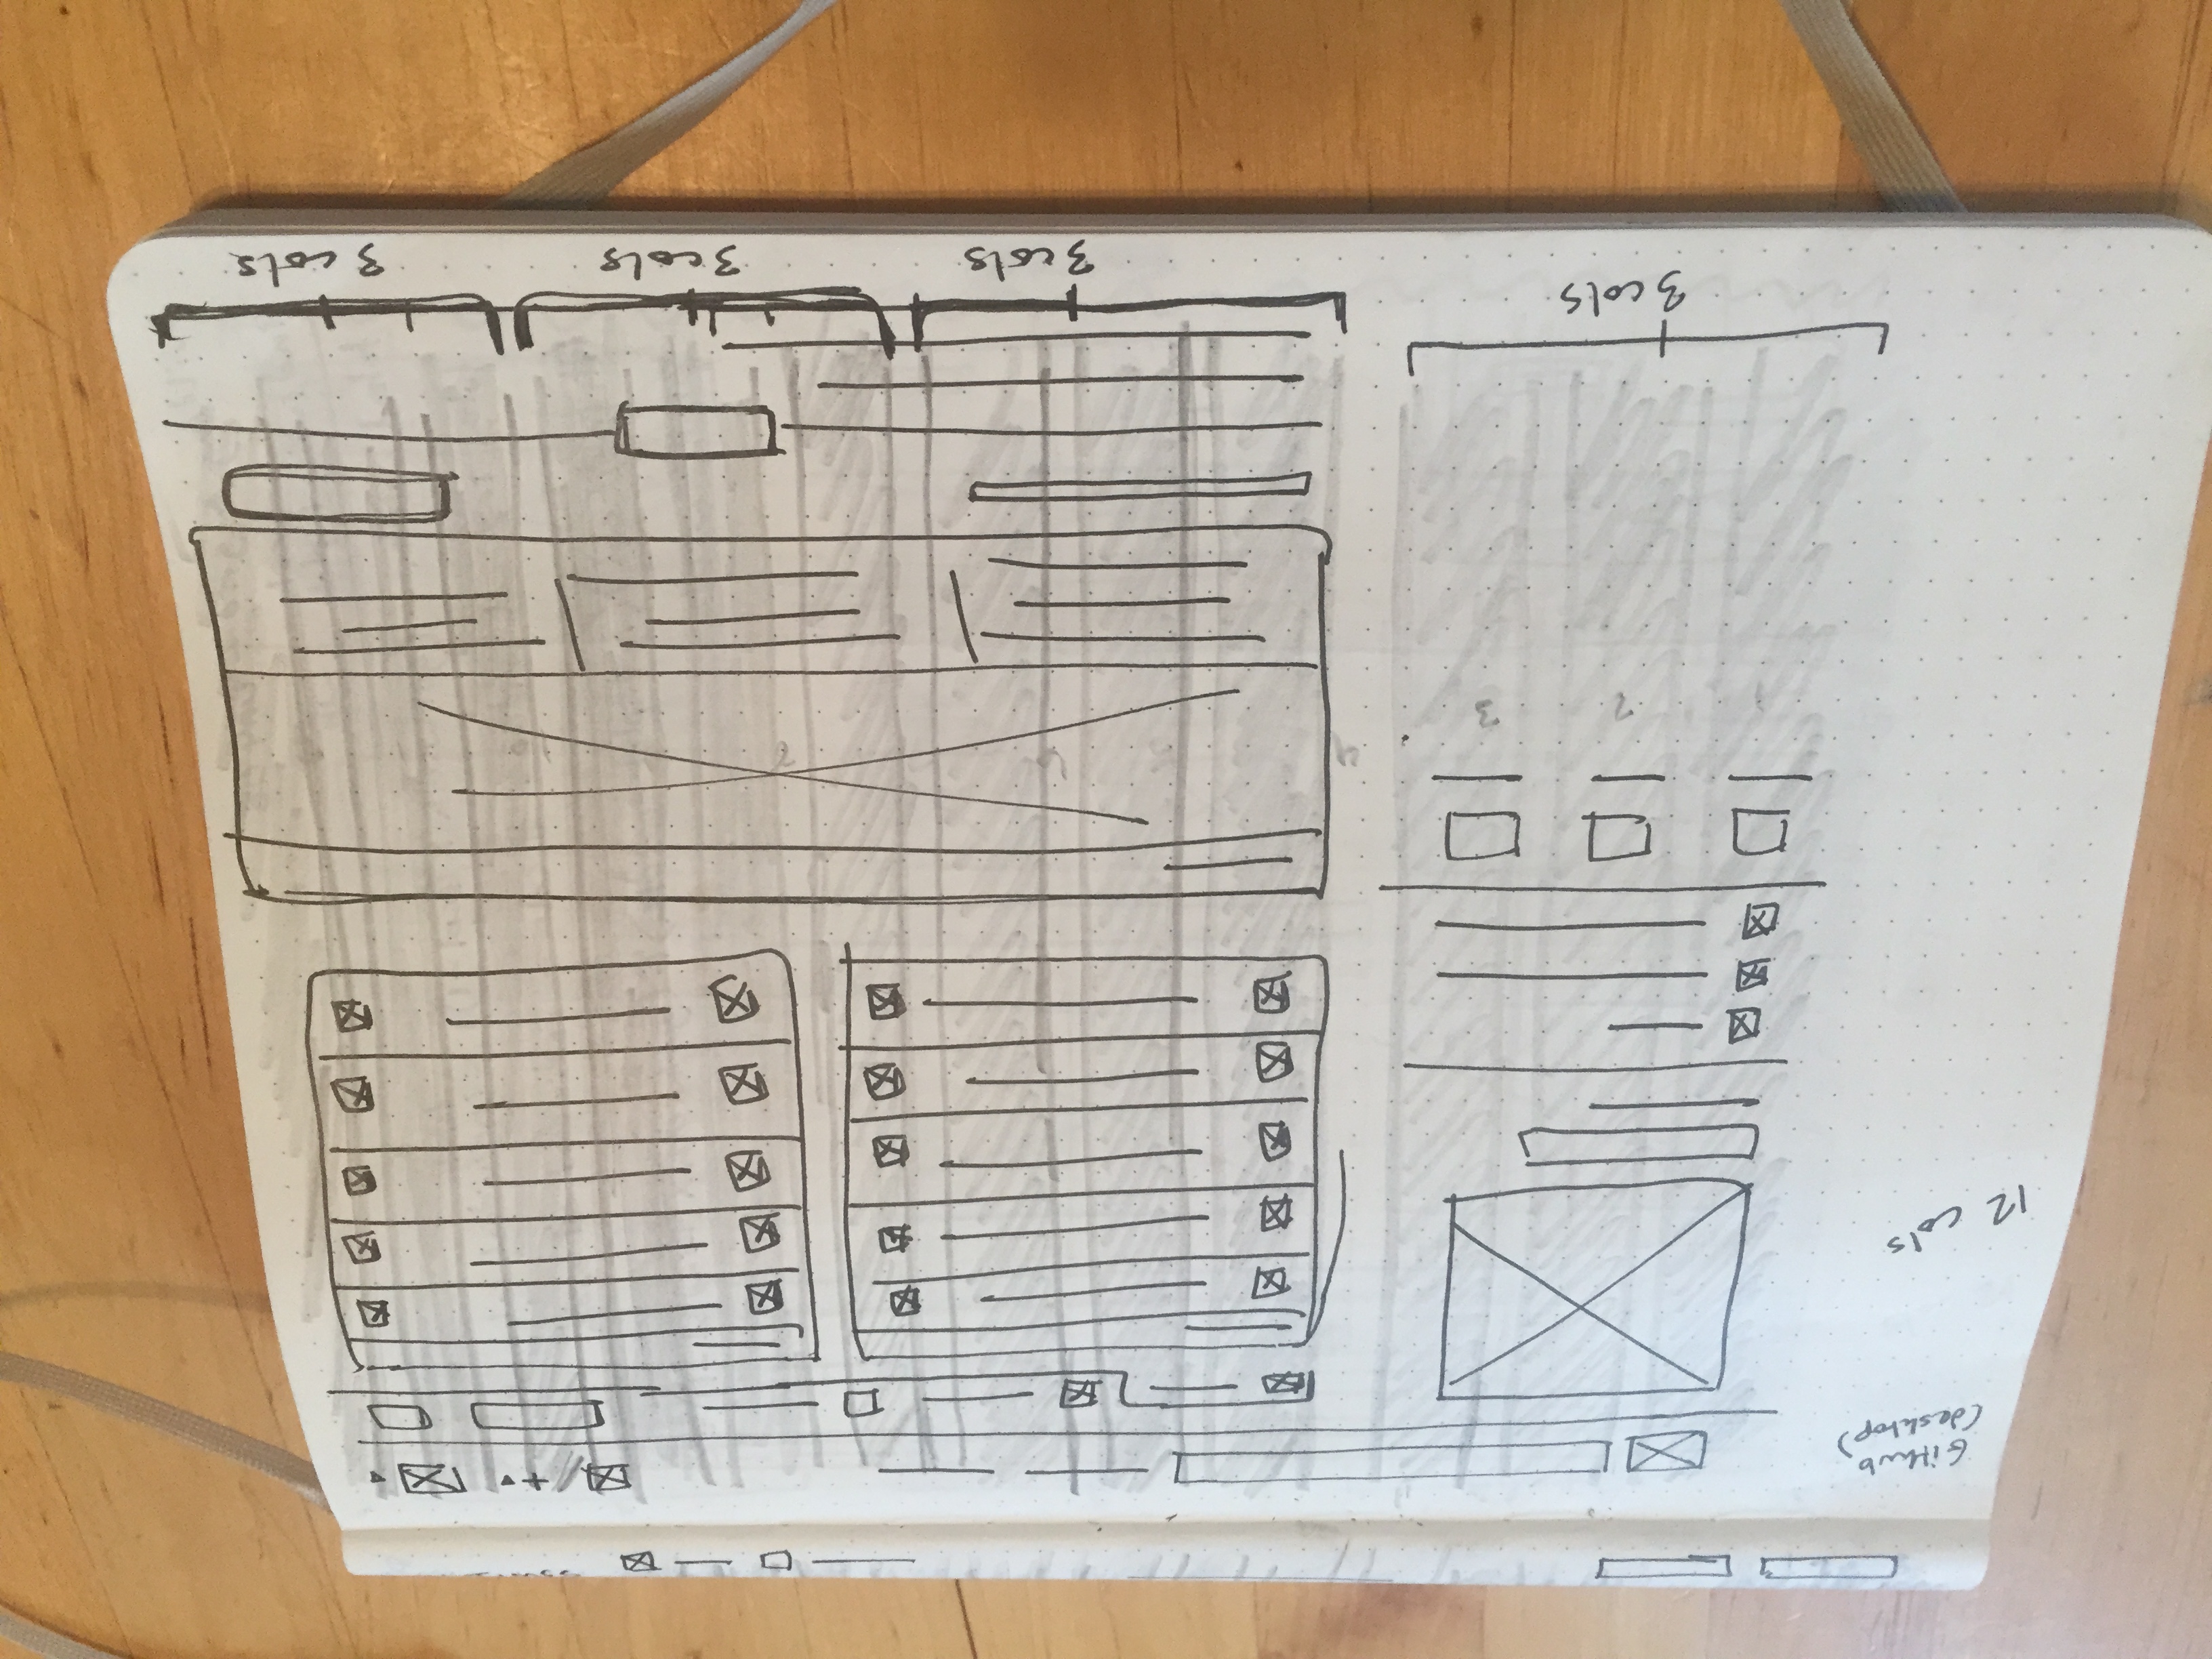 Github
(desktop)
12 cols
1 2 3
4 6 8
3 cols
3 cols
3 cols
3 cols